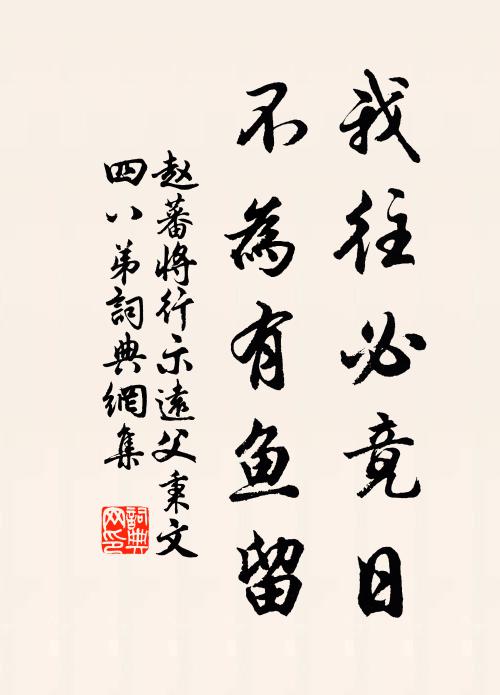 我往必竟日
不為有鱼留
赵蕃将行示遠父秉文
四八弟詞典網集
詞典
网印